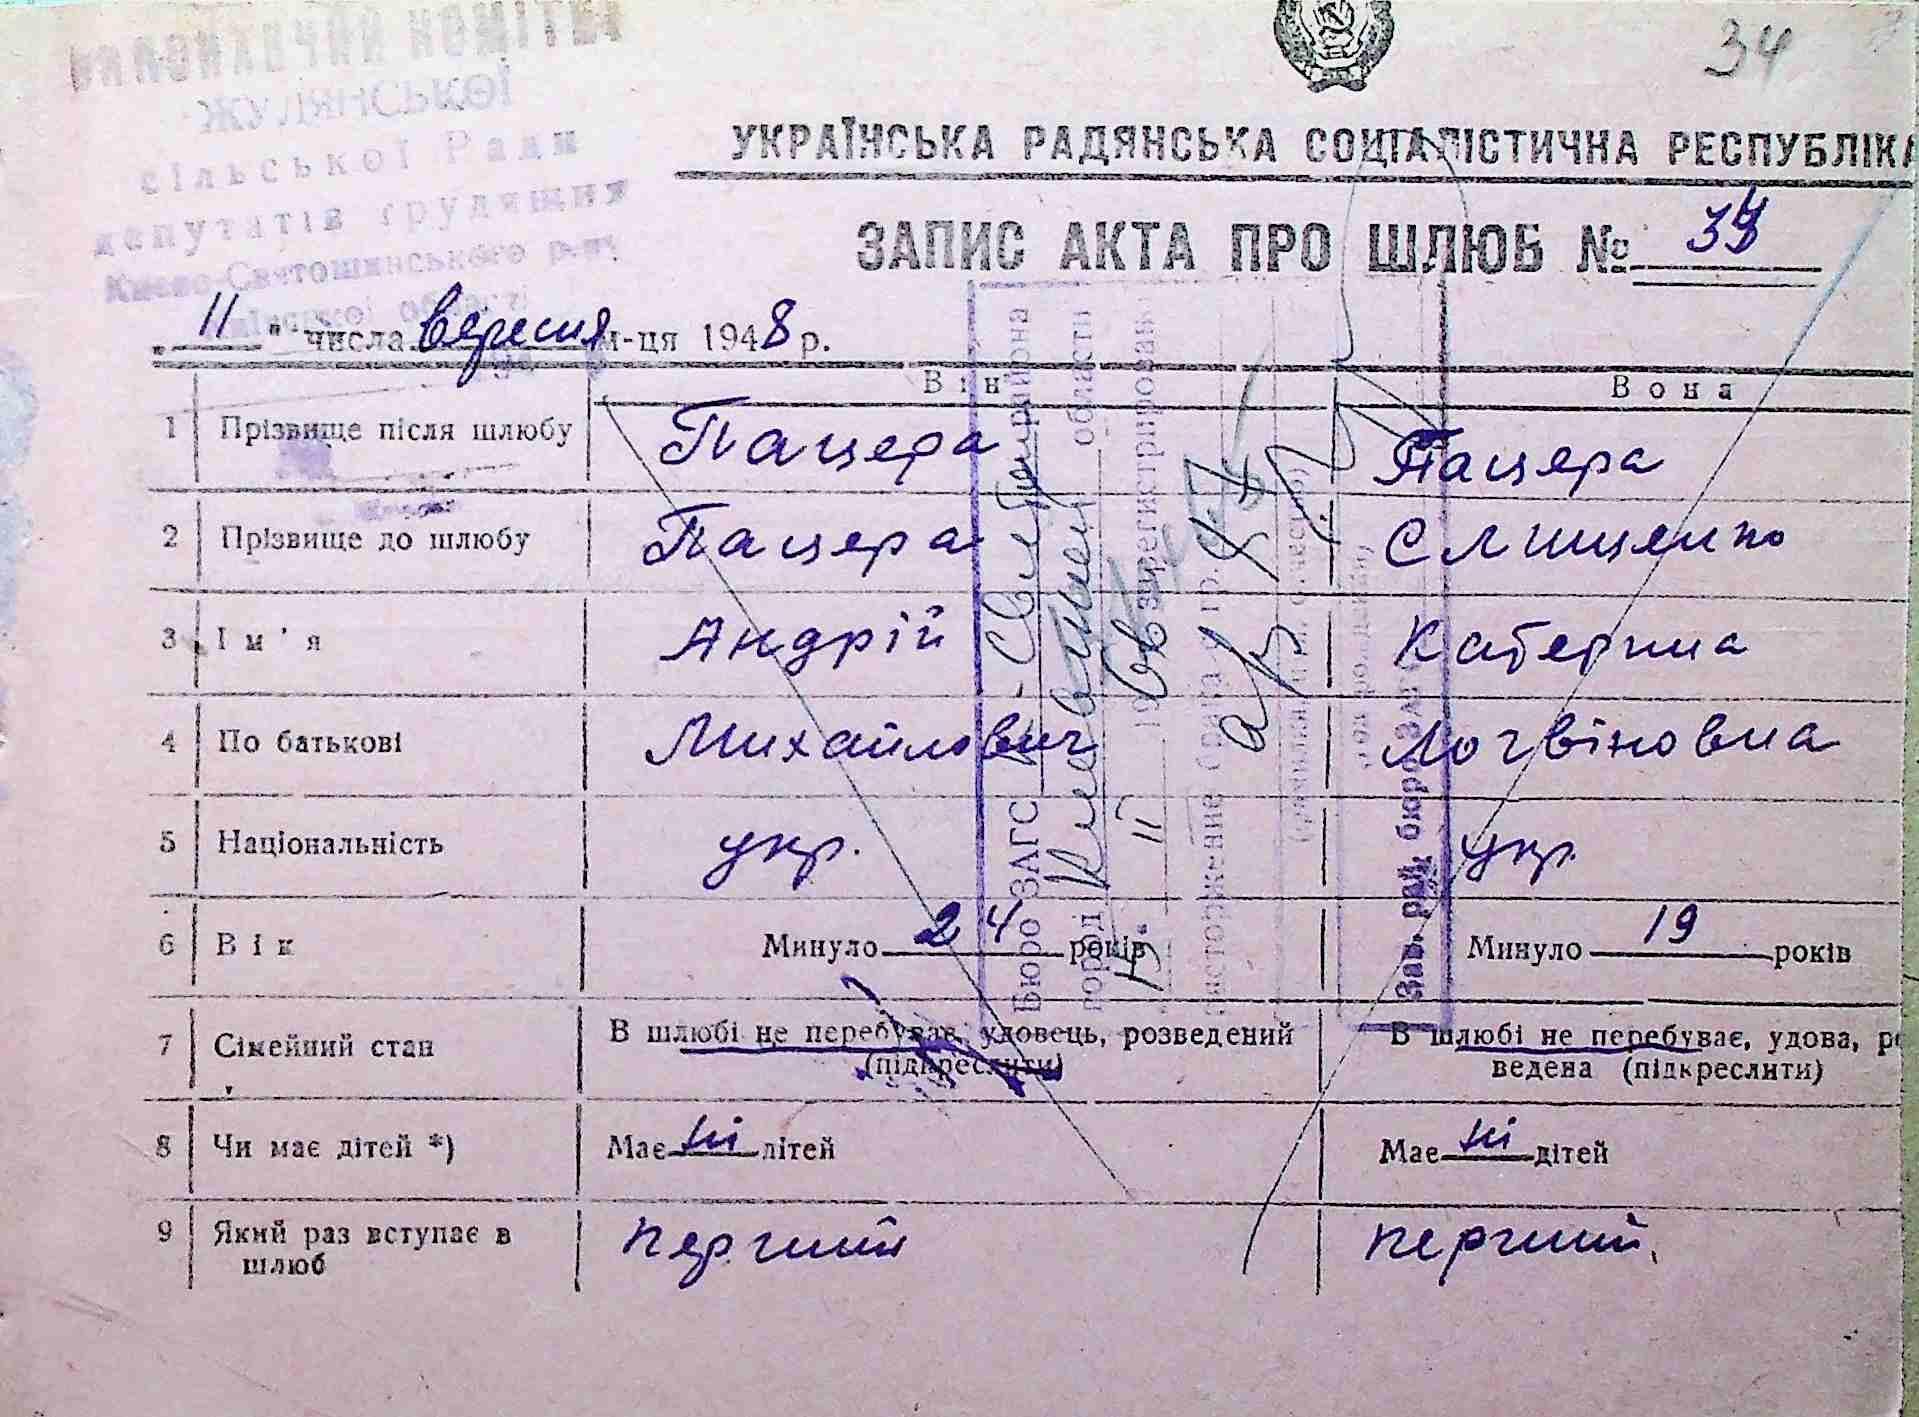 34
ВИКОНАВЧИЙ КОМІТЕТ
ЖУЛЯНСЬКОЇ
сільської Ради
депутатів трудящих
Києво-Святошинського р-ну
області
УКРАЇНСЬКА РАДЯНСЬКА СОЦІАЛІСТИЧНА РЕСПУБЛІКА
ЗАПИС АКТА ПРО ШЛЮБ №
„ 11 " числа вересня м-ця 1948 р.
Він Вона
1 Прізвище після шлюбу Пацера Пацера
2 Прізвище до шлюбу Пацера Слищенко
3 Ім'я Андрій Катерина
4 По батькові Михайлович Логвіновна
5 Національність укр. укр
6 Вік Минуло 24 років Минуло 19 років
7 Сімейний стан В шлюбі не перебуває, удовець, розведений В шлюбі не перебуває, удова, ро
(підкреслити) ведена (підкреслити)
8 Чи має дітей *) Має ні дітей Має ні дітей
9 Який раз вступає в перший перший
шлюб
Бюро ЗАГС К-Святошин района
город области
зарегистрирован
расторжение брака
Зав. рай. бюро ЗАГС